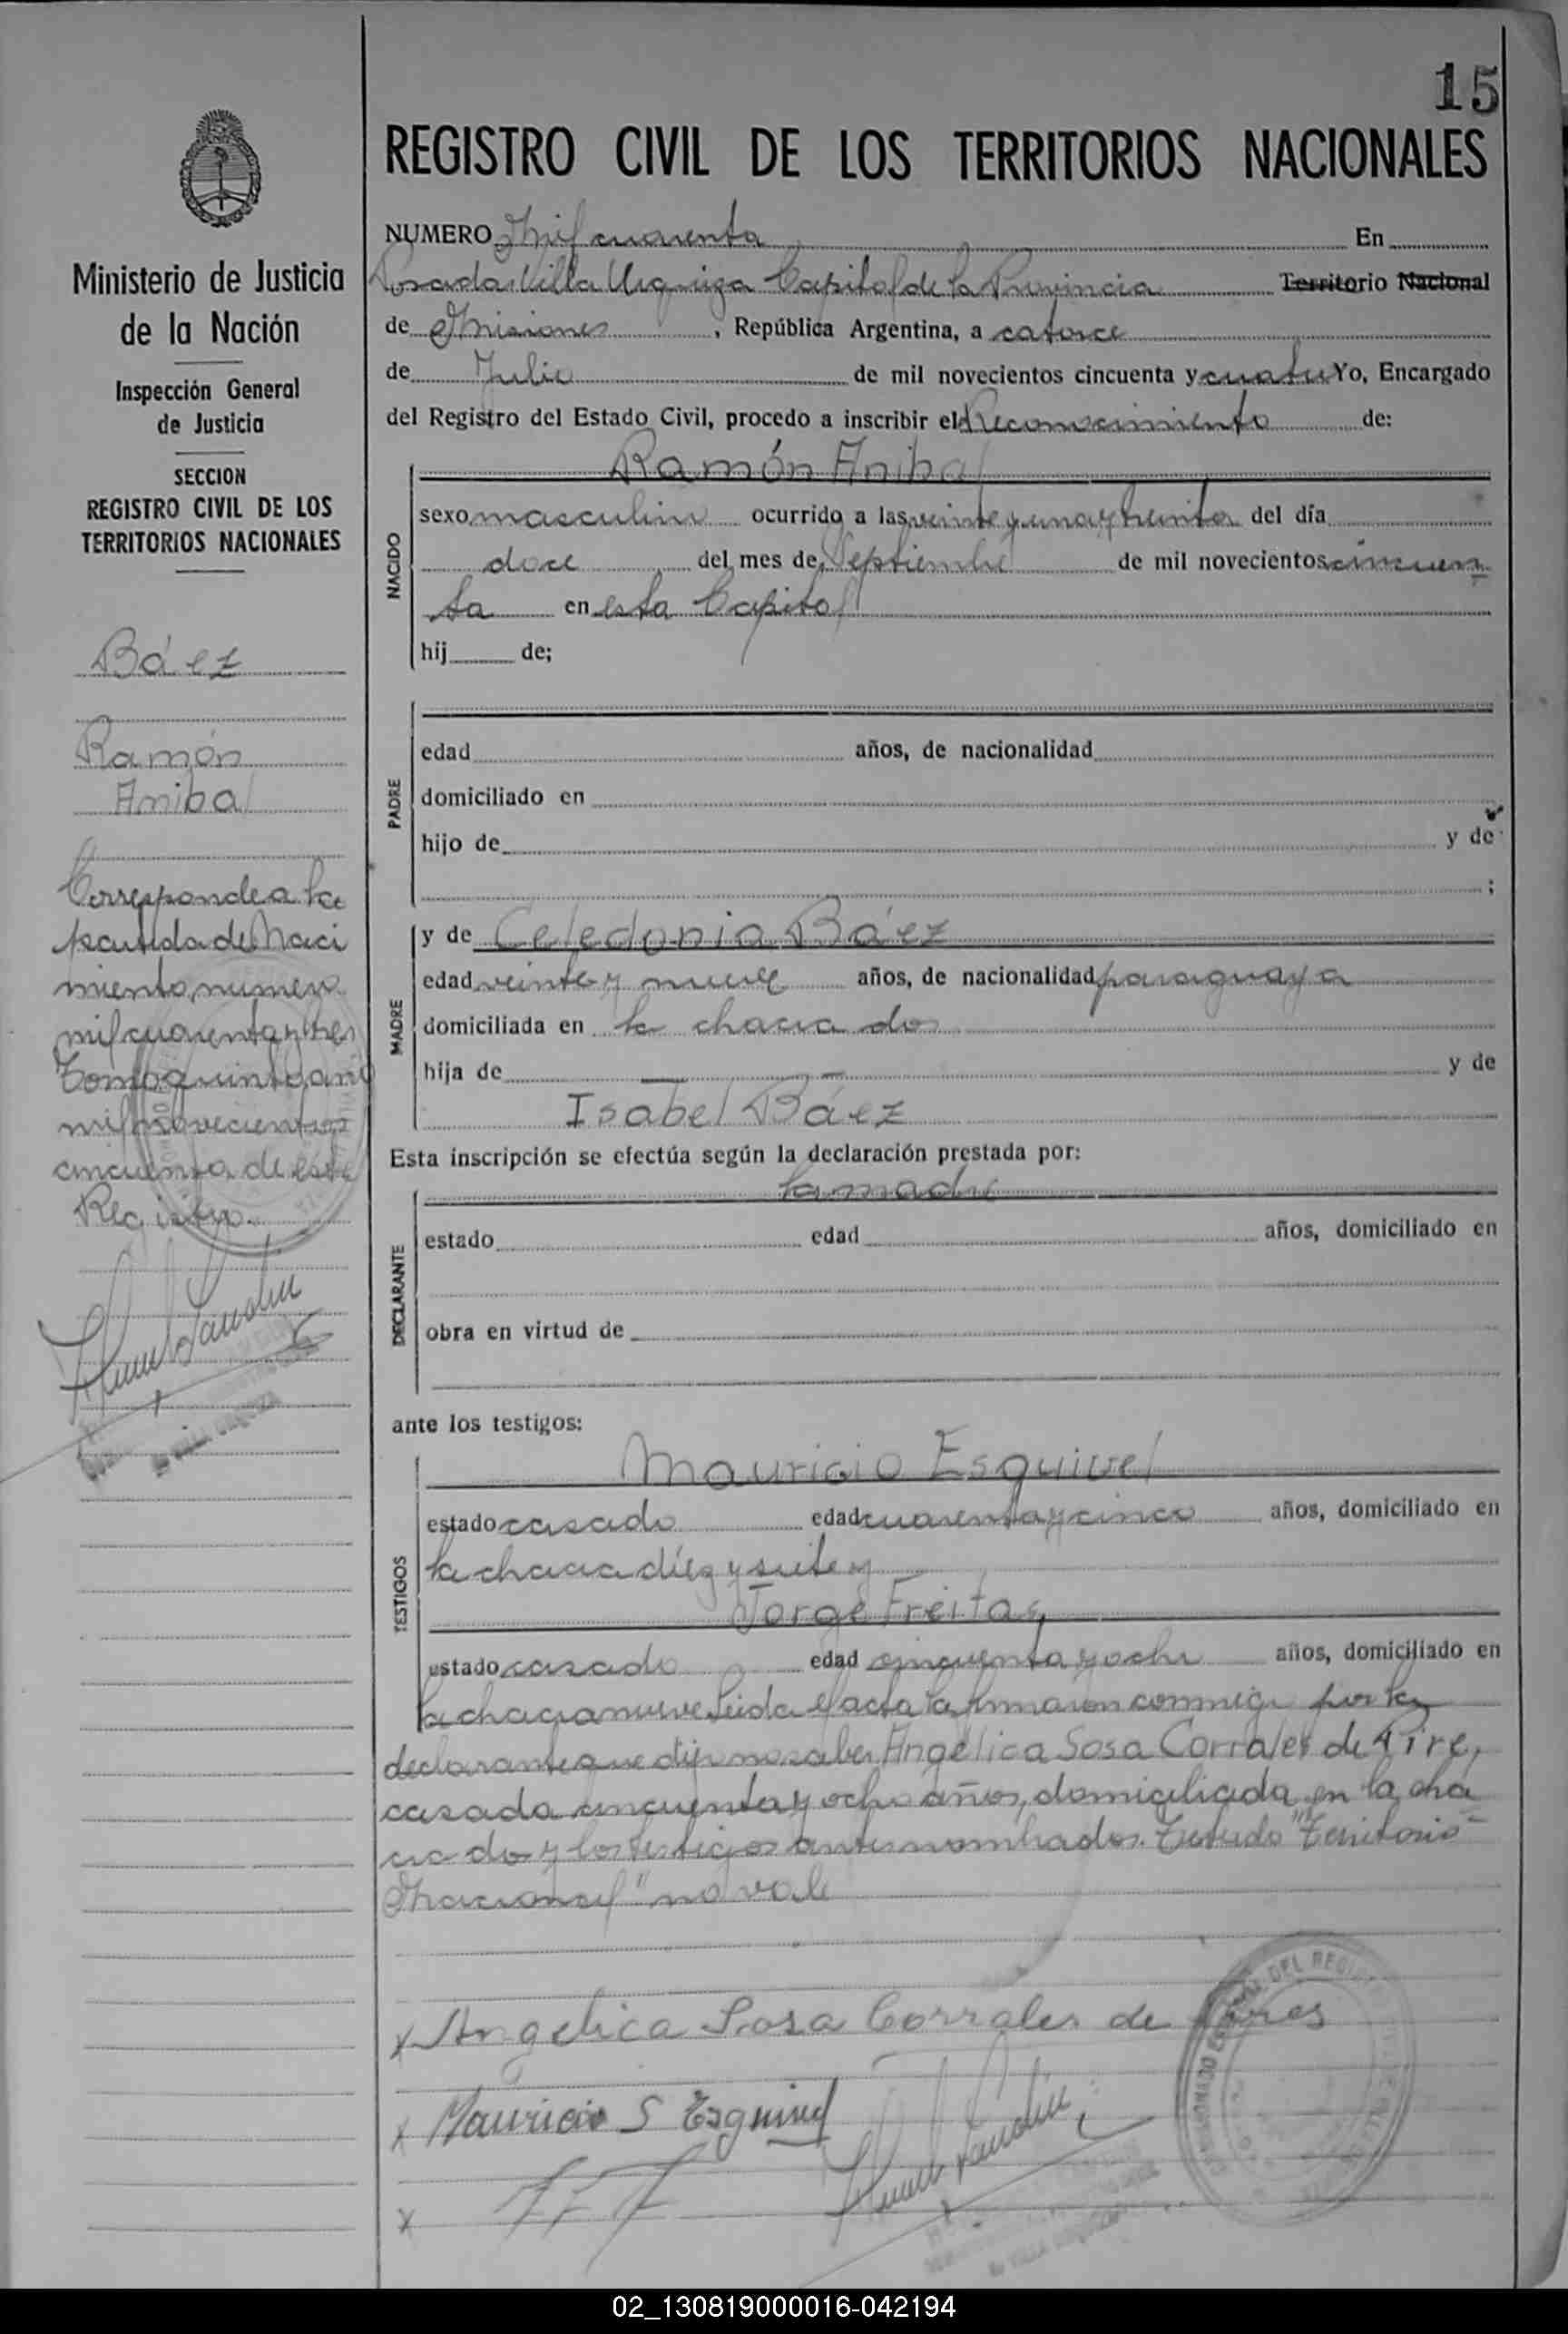 15
REGISTRO CIVIL DE LOS TERRITORIOS NACIONALES
Ministerio de Justicia
de la Nación
Inspección General
de Justicia
SECCION
REGISTRO CIVIL DE LOS
TERRITORIOS NACIONALES
Báez
Ramón
Anibal
Corresponde a la
partida de Naci
miento numero
mil cuarenta y tres
Tomo quinto año
mil novecientos
cincuenta de este
Registro.
NUMERO Mil cuarenta En
Posadas Villa Urquiza Capital de la Provincia Territorio Nacional
de Misiones, República Argentina, a catorce
de Julio de mil novecientos cincuenta y cuatro Yo, Encargado
del Registro del Estado Civil, procedo a inscribir el Reconocimiento de:
Ramón Anibal
NACIDO
sexo masculino ocurrido a las veinte y una y treinta del día
doce del mes de Septiembre de mil novecientos cincuen
ta en esta Capital
hij de;
PADRE
edad años, de nacionalidad
domiciliado en
hijo de y de
;
MADRE
y de Celedonia Báez
edad veinte y nueve años, de nacionalidad paraguaya
domiciliada en la chacra dos
hija de y de
Isabel Báez
Esta inscripción se efectúa según la declaración prestada por:
la madre
DECLARANTE
estado edad años, domiciliado en
obra en virtud de
ante los testigos:
TESTIGOS
Mauricio Esquivel
estado casado edad cuarenta y cinco años, domiciliado en
la chacra diez y siete y
Jorge Freitas,
estado casado edad cincuenta y ocho años, domiciliado en
la chacra nueve Leida el acta la firmaron conmigo por la
declarante que dijo no saber Angélica Sosa Corrales de Pire,
casada cincuenta y ocho años, domiciliada en la cha
cra dos y los testigos antes nombrados. Testado "Territorio
Nacional" no vale
x Angelica Sosa Corrales de Pires
x Mauricio S Esquivel
x
DEL REGI
02_130819000016-042194